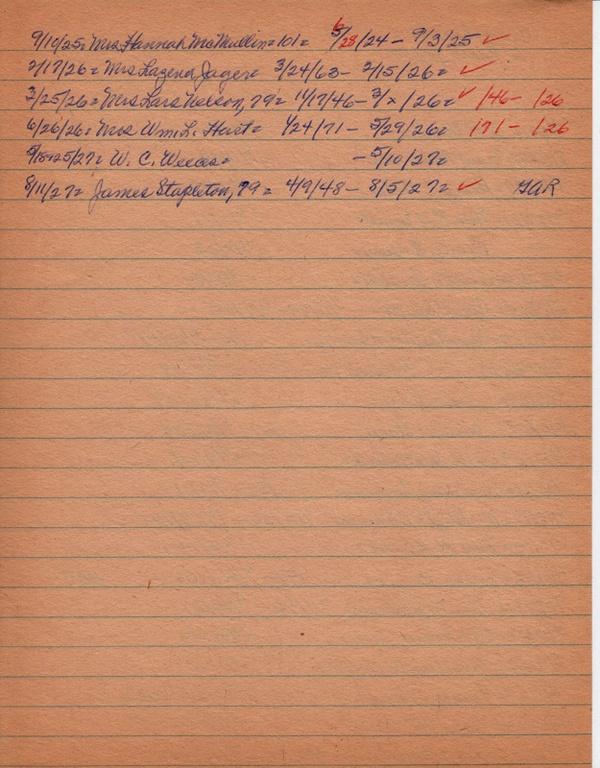 9/10/25= Mrs Hannah McMullin=101= 5/28/24 - 9/3/25 ✓
2/17/26= Mrs Lazena Jager= 3/24/63- 2/15/26= ✓
3/25/26= Mrs Lars Nelson, 79= 11/17/46- 3/x/26= ✓ /46- /26
6/26/26= Mrs Wm. L. Hurt= 1/24/71 - 5/29/26= /71 - /26
25/27= W. C. - 5/10/27=
8/11/27= James Stapleton, 79= 4/9/48- 8/5/27= ✓ GAR